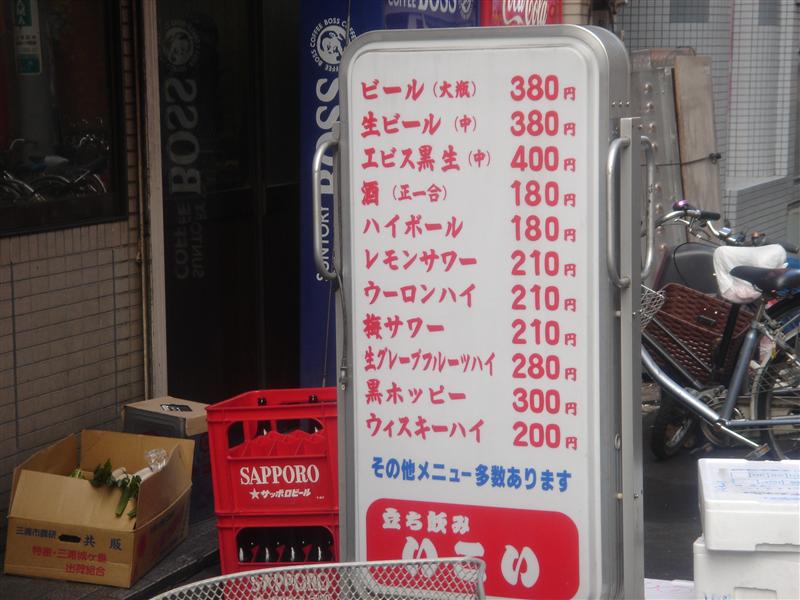 COFFEE BOSS
Coca-Cola
BOSS
SUNTORY
ビール(大瓶) 380円
生ビール(中) 380円
エビス黒生(中) 400円
酒(正一合) 180円
ハイボール 180円
レモンサワー 210円
ウーロンハイ 210円
梅サワー 210円
生グレープフルーツハイ 280円
黒ホッピー 300円
ウィスキーハイ 200円
その他メニュー多数あります
立ち飲み
いこい
SAPPORO
★サッポロビール
SAPPORO
三浦市農研
共販
特産・三浦
出荷組合
BOSS